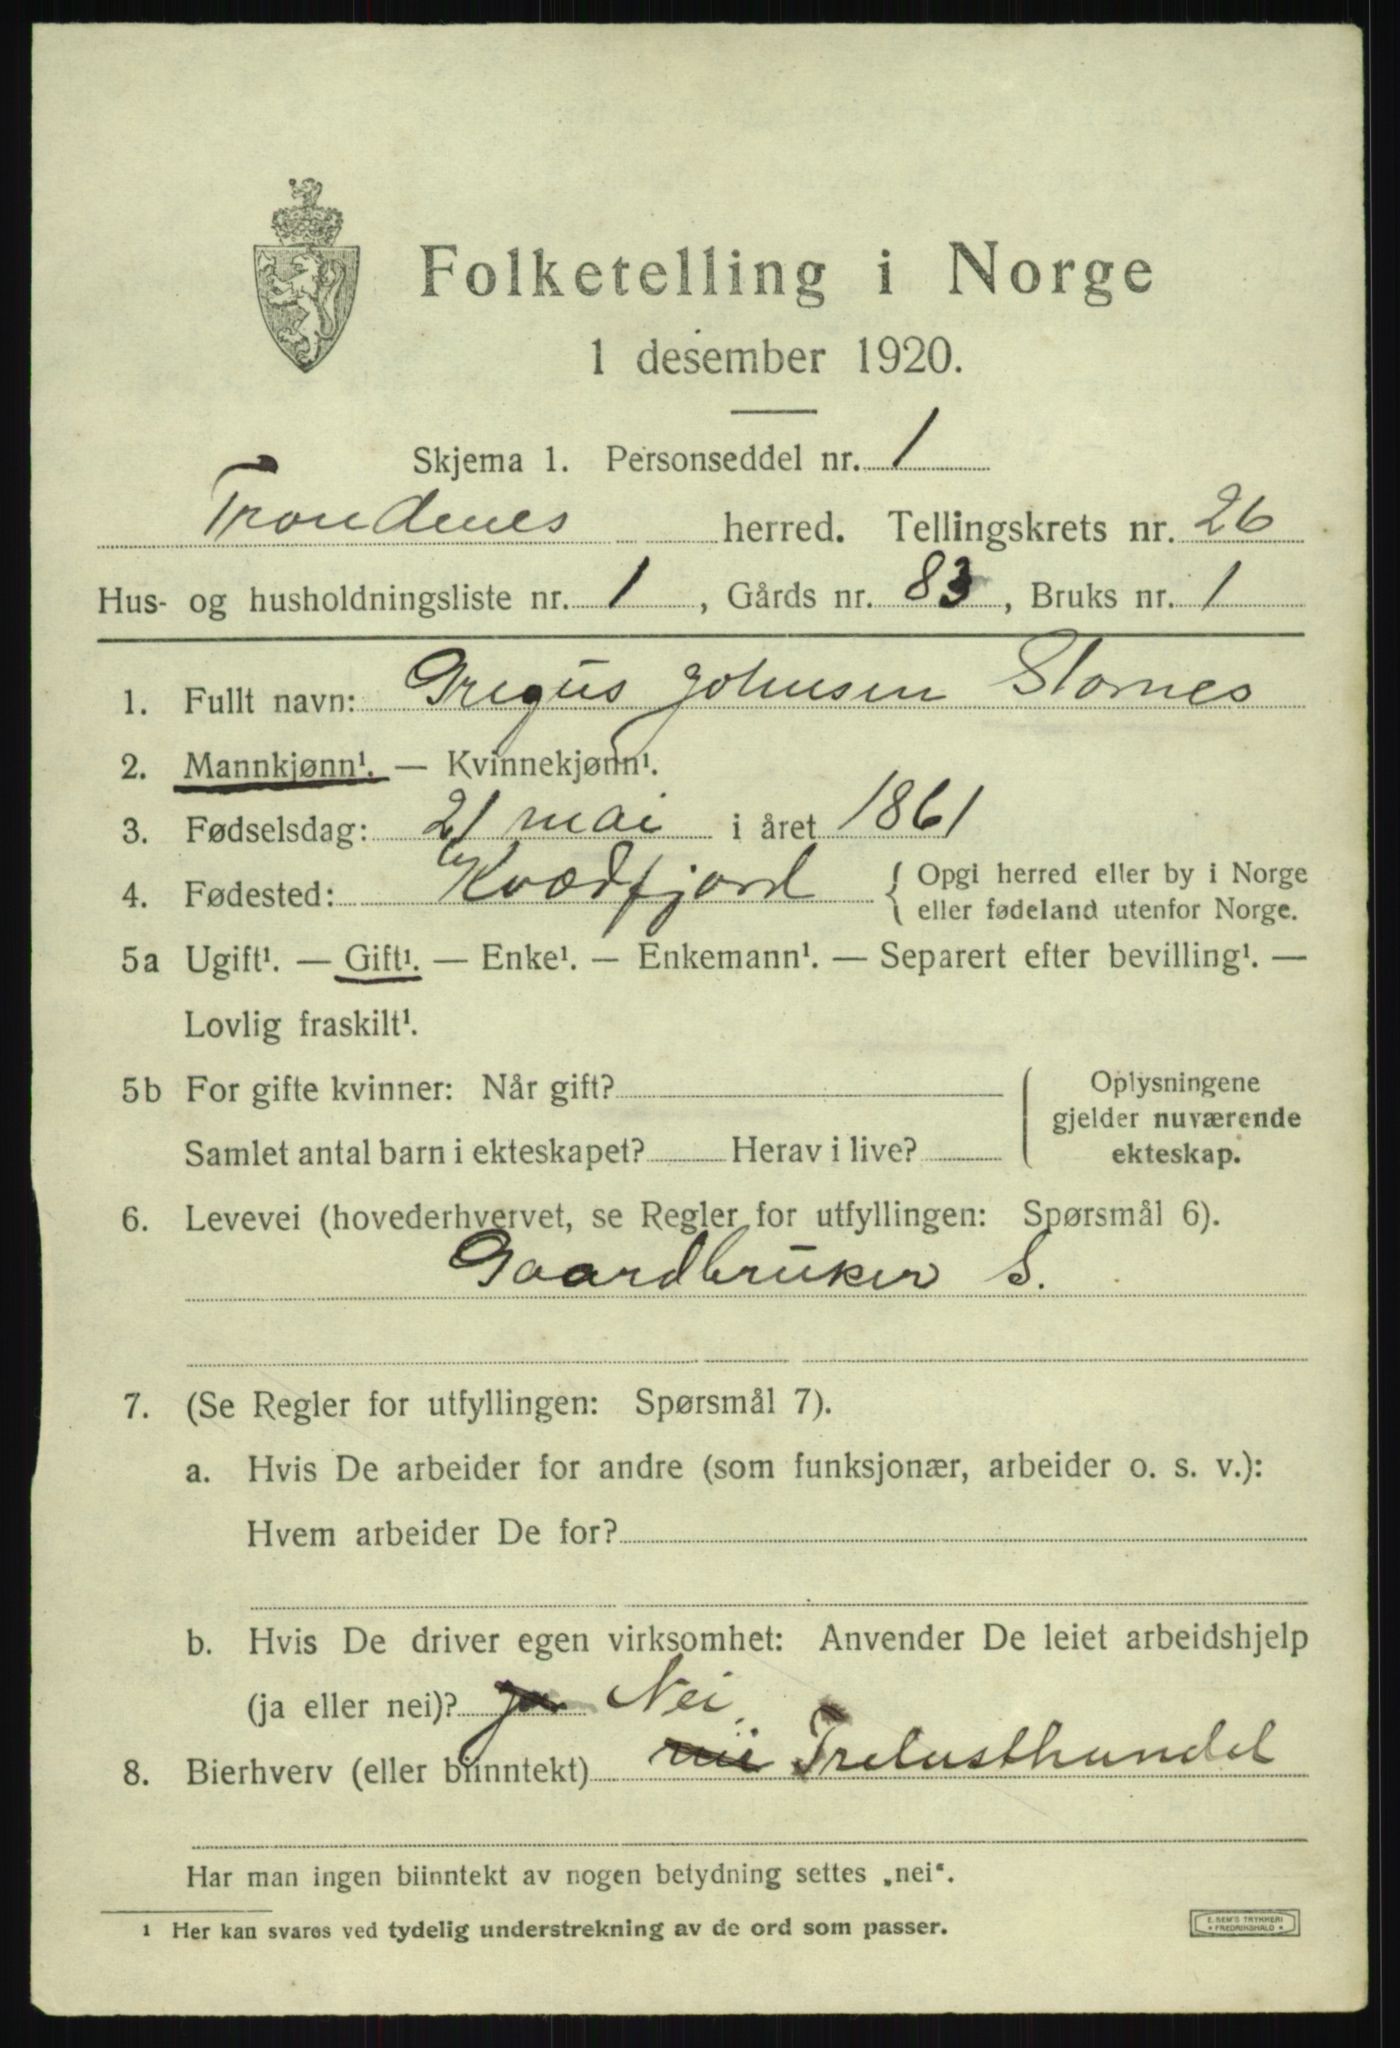 Folketelling i Norge
1 desember 1920.
Skjema 1. Personseddel nr. 1
Trondenes herred. Tellingskrets nr. 26
Hus- og husholdningsliste nr. 1, Gårds nr. 83, Bruks nr. 1
1. Fullt navn: Gregus Johnsen Stornes
2. Mannkjønn¹. — Kvinnekjønn¹.
3. Fødselsdag: 21 mai i året 1861
4. Fødested: Kvædfjord { Opgi herred eller by i Norge
eller fødeland utenfor Norge.
5a Ugift¹. — Gift¹. — Enke¹. — Enkemann¹. — Separert efter bevilling¹. —
Lovlig fraskilt¹.
5b For gifte kvinner: Når gift?
Samlet antal barn i ekteskapet? Herav i live?
Oplysningene
gjelder nuværende
ekteskap.
6. Levevei (hovederhvervet, se Regler for utfyllingen: Spørsmål 6).
Gaardbruker S.
7. (Se Regler for utfyllingen: Spørsmål 7).
a. Hvis De arbeider for andre (som funksjonær, arbeider o. s. v.):
Hvem arbeider De for?
b. Hvis De driver egen virksomhet: Anvender De leiet arbeidshjelp
(ja eller nei)? ja Nei
8. Bierhverv (eller biinntekt) nei Trelasthandel
Har man ingen biinntekt av nogen betydning settes „nei“.
1 Her kan svares ved tydelig understrekning av de ord som passer.
E. SEM'S TRYKKERI
* FREDRIKSHALD *